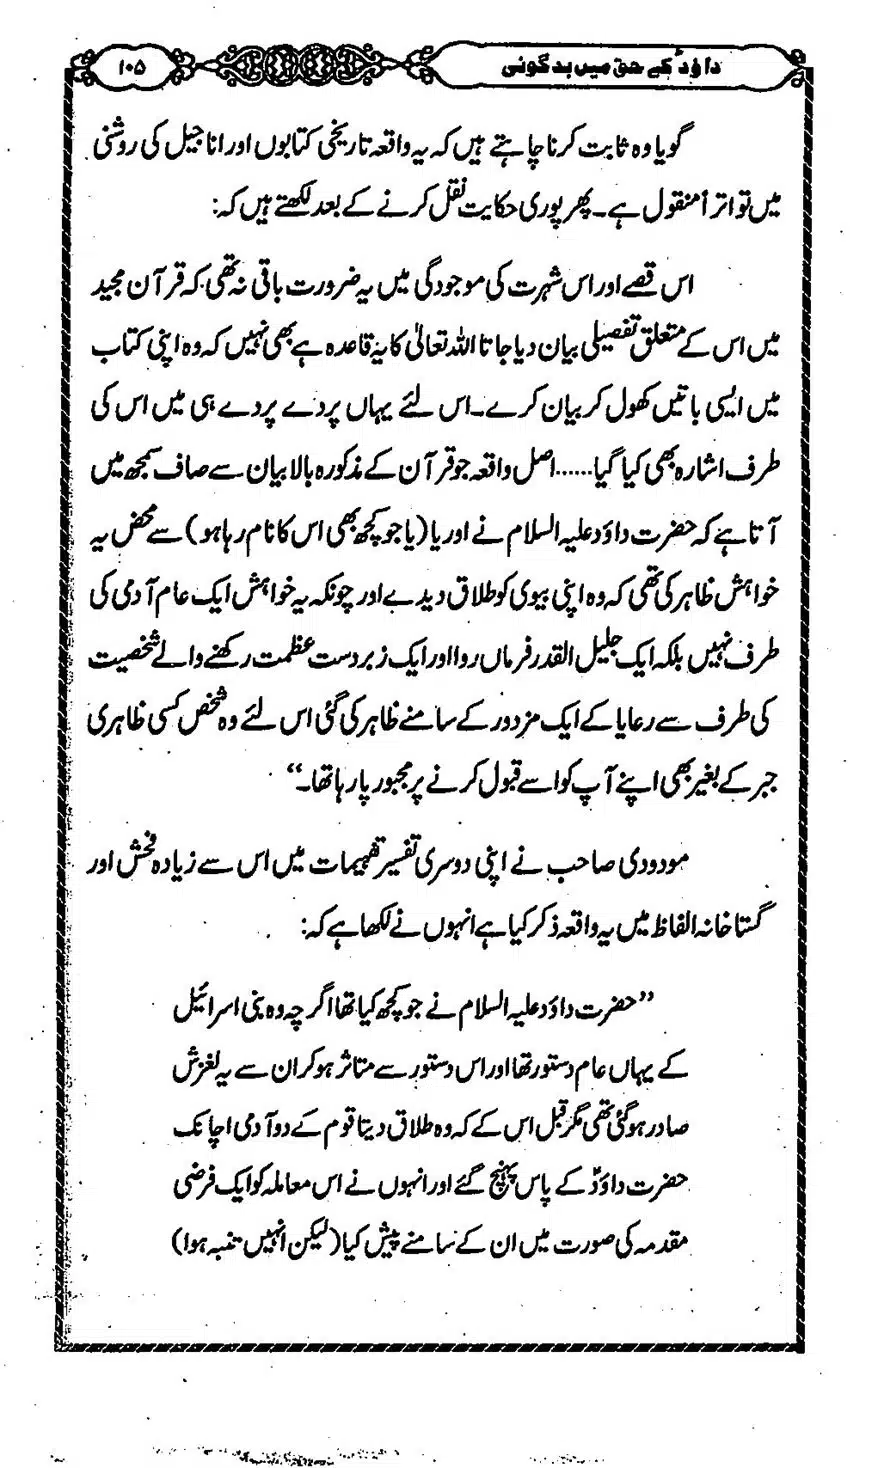 داؤدؑ کے حق میں بدگوئی
۱۰۵
گویا وہ ثابت کرنا چاہتے ہیں کہ یہ واقعہ تاریخی کتابوں اور اناجیل کی روشنی
میں تواتراً منقول ہے۔ پھر پوری حکایت نقل کرنے کے بعد لکھتے ہیں کہ:
اس قصے اور اس شہرت کی موجودگی میں یہ ضرورت باقی نہ تھی کہ قرآن مجید
میں اس کے متعلق تفصیلی بیان دیا جاتا اللہ تعالیٰ کا یہ قاعدہ ہے بھی نہیں کہ وہ اپنی کتاب
میں ایسی باتیں کھول کر بیان کرے۔ اس لئے یہاں پردے پردے ہی میں اس کی
طرف اشارہ بھی کیا گیا...... اصل واقعہ جو قرآن کے مذکورہ بالا بیان سے صاف سمجھ میں
آتا ہے کہ حضرت داؤد علیہ السلام نے اوریا (یا جو کچھ بھی اس کا نام رہا ہو) سے محض یہ
خواہش ظاہر کی تھی کہ وہ اپنی بیوی کو طلاق دیدے اور چونکہ یہ خواہش ایک عام آدمی کی
طرف نہیں بلکہ ایک جلیل القدر فرماں روا اور ایک زبردست عظمت رکھنے والے شخصیت
کی طرف سے رعایا کے ایک مزدور کے سامنے ظاہر کی گئی اس لئے وہ شخص کسی ظاہری
جبر کے بغیر بھی اپنے آپ کو اسے قبول کرنے پر مجبور پا رہا تھا۔“
مودودی صاحب نے اپنی دوسری تفسیر تفہیمات میں اس سے زیادہ فحش اور
گستاخانہ الفاظ میں یہ واقعہ ذکر کیا ہے انہوں نے لکھا ہے کہ:
”حضرت داؤد علیہ السلام نے جو کچھ کیا تھا اگرچہ وہ بنی اسرائیل
کے یہاں عام دستور تھا اور اس دستور سے متاثر ہو کر ان سے یہ لغزش
صادر ہو گئی تھی مگر قبل اس کے کہ وہ طلاق دیتا قوم کے دو آدمی اچانک
حضرت داؤدؑ کے پاس پہنچ گئے اور انہوں نے اس معاملہ کو ایک فرضی
مقدمہ کی صورت میں ان کے سامنے پیش کیا (لیکن انہیں تنبہ ہوا)